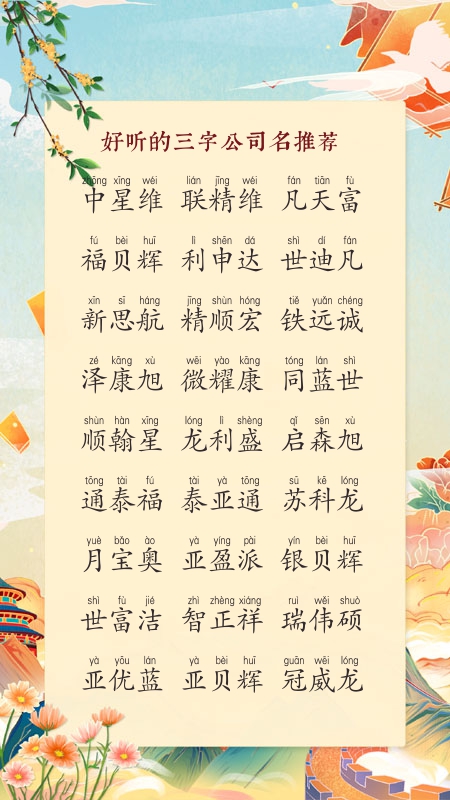 好听的三字公司名推荐
zhōng xīng wéi lián jīng wéi fán tiān fù
中星维 联精维 凡天富
fú bèi huī lì shēn dá shì dí fán
福贝辉 利申达 世迪凡
xīn sī háng jīng shùn hóng tiě yuǎn chéng
新思航 精顺宏 铁远诚
zé kāng xù wēi yào kāng tóng lán shì
泽康旭 微耀康 同蓝世
shùn hàn xīng lóng lì shèng qǐ sēn xù
顺翰星 龙利盛 启森旭
tōng tài fú tài yà tōng sū kē lóng
通泰福 泰亚通 苏科龙
yuè bǎo ào yà yíng pài yín bèi huī
月宝奥 亚盈派 银贝辉
shì fù jié zhì zhèng xiáng ruì wěi shuò
世富洁 智正祥 瑞伟硕
yà yōu lán yà bèi huī guān wēi lóng
亚优蓝 亚贝辉 冠威龙